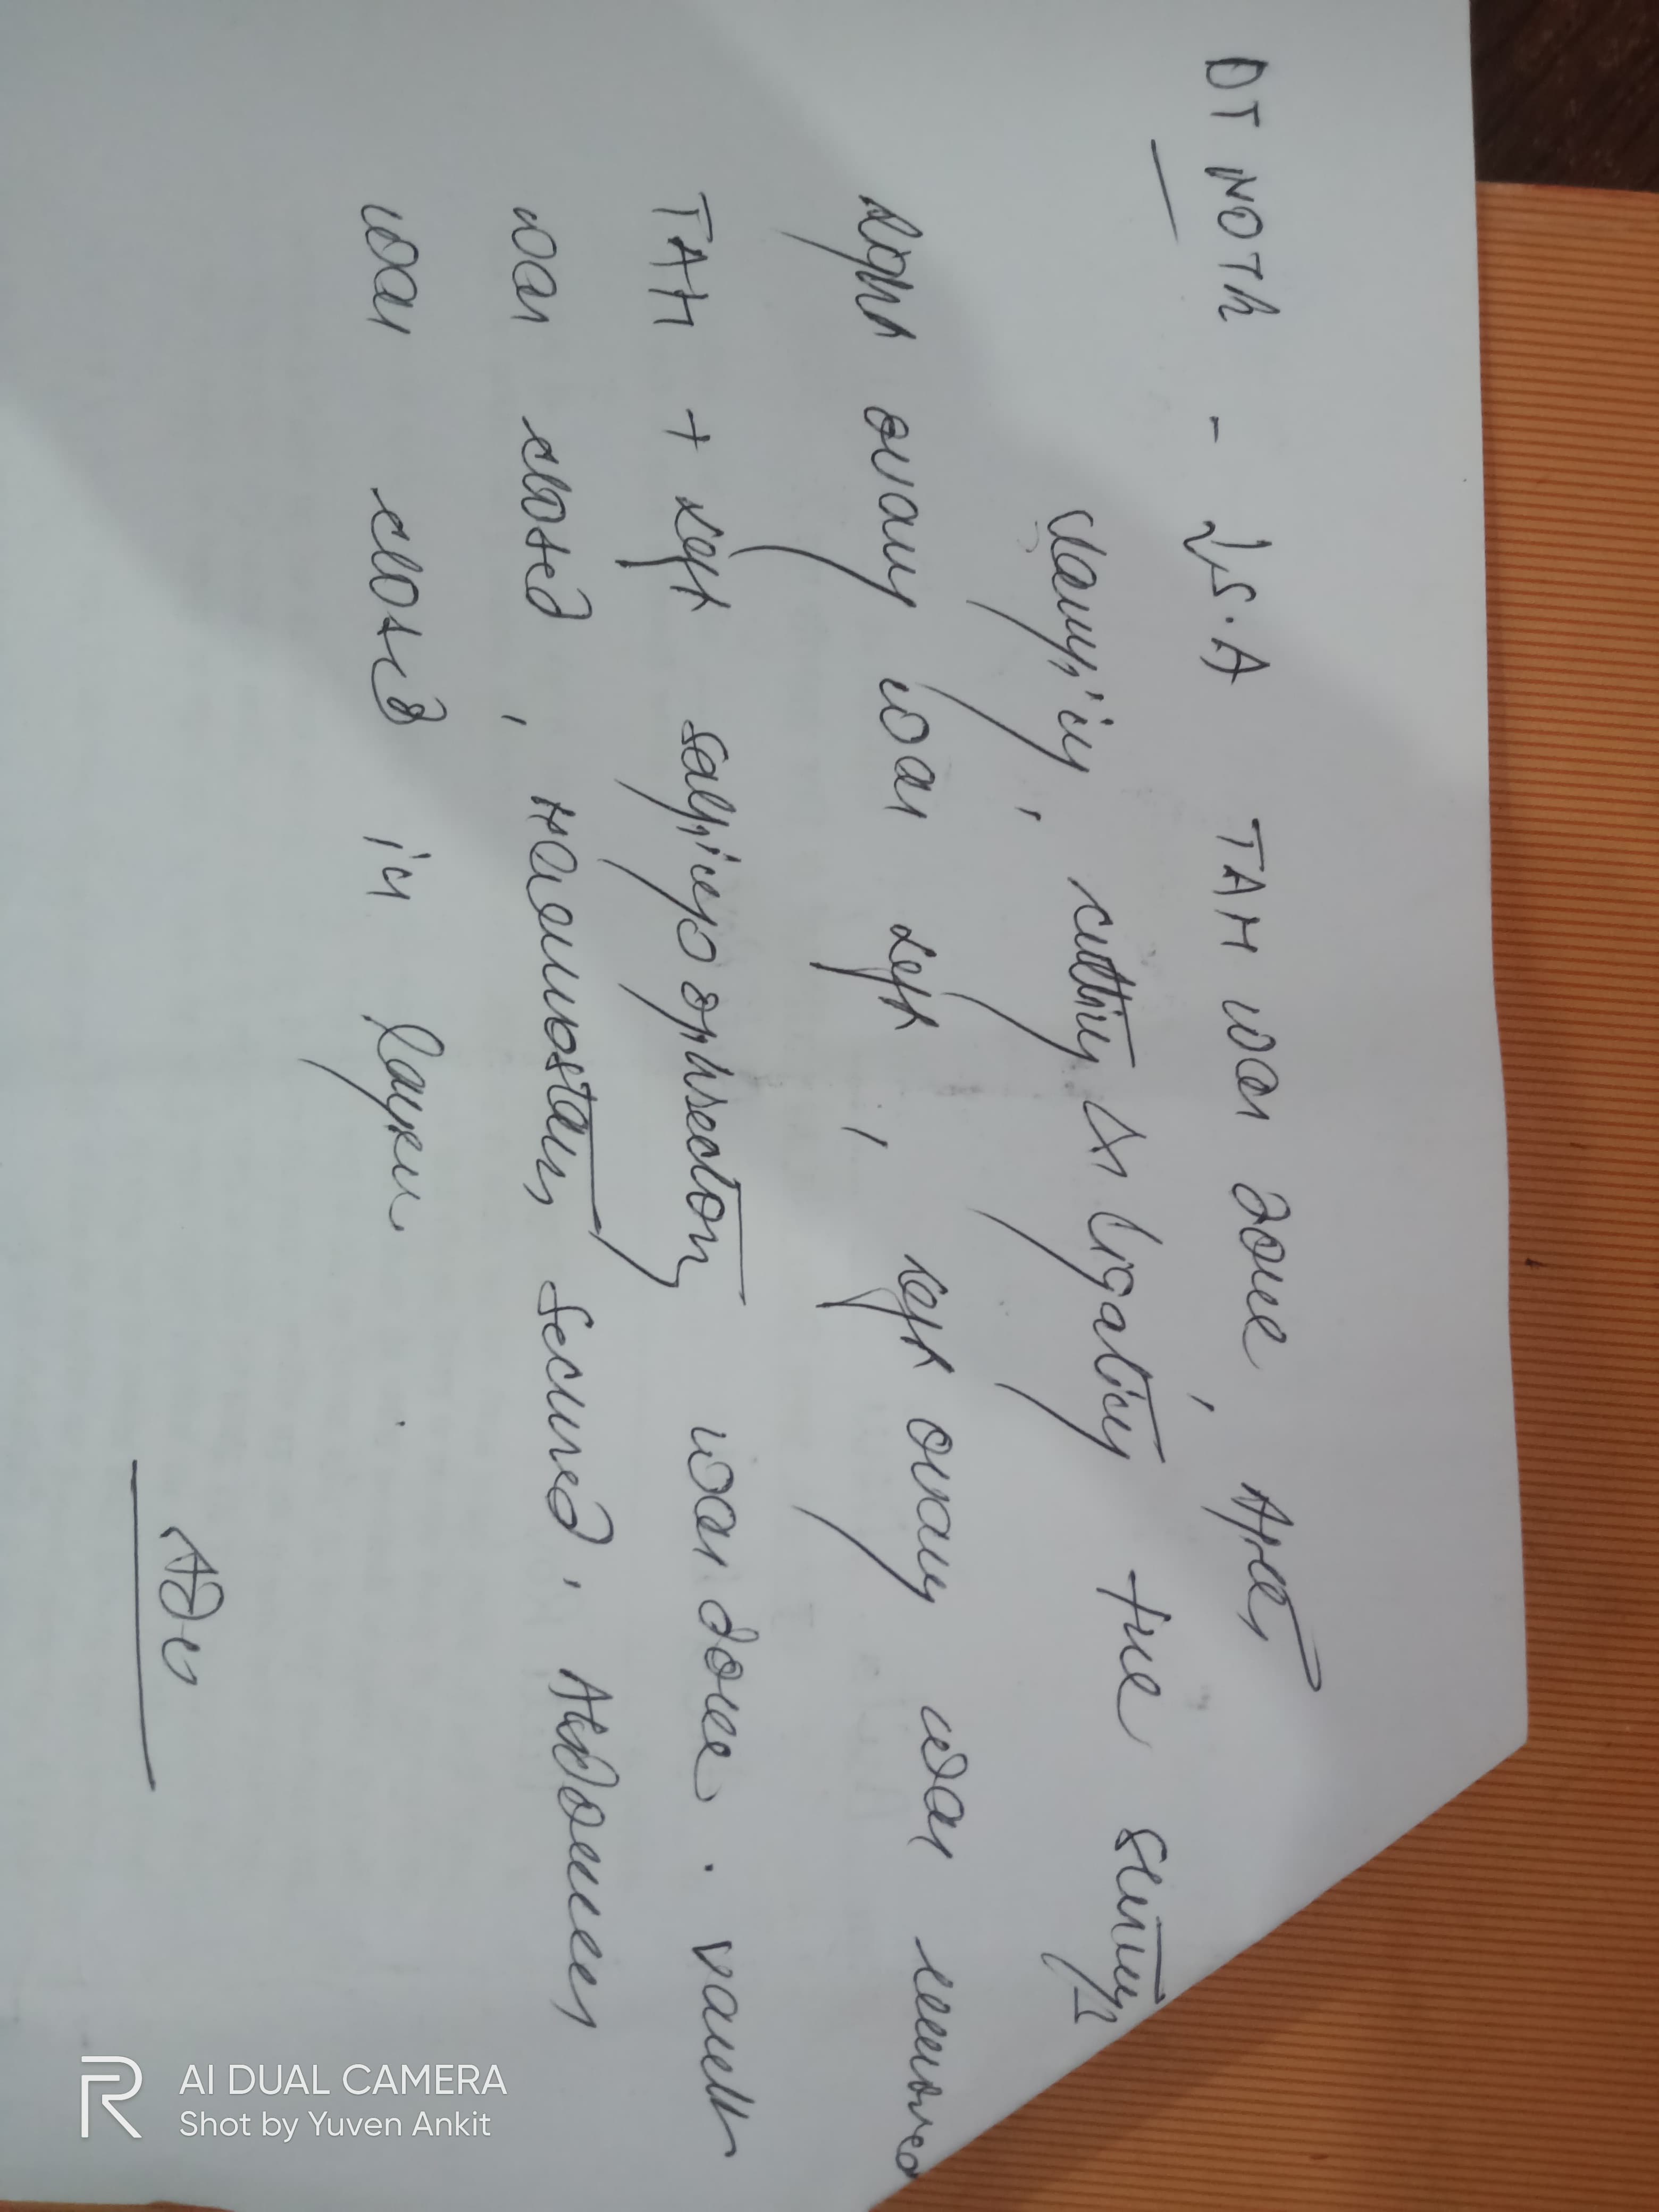 OT NOTE - ↓S.A TAH was done, After
clamping, cutting & ligating the stumps
Right ovary was left, left ovary was removed
TAH + left salpingoophrectomy was done. vault
was closed, Haemostasis secured, Abdomen
was closed in layers.
Adv
AI DUAL CAMERA
Shot by Yuven Ankit